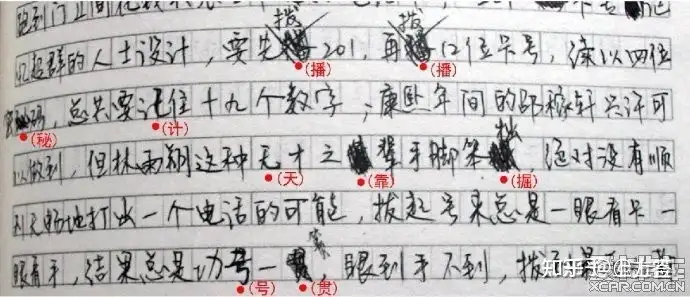 跑到门卫间
亿超群的人士设计，要先拨201，再拨12位卡号，续以四位
密码，总共要计住十九个数字；康熙年间的邵稼轩兴许可
以做到，但林雨翔这种天才之辈手脚笨拙，绝对没有顺
利无畅地打出一个电话的可能，拨起号来总是一眼看卡一
眼看手，结果总是功号一篑，眼到手不到，拨
(播)
(播)
(秘)
(计)
(天)
(靠)
(掘)
(号)
(贯)
知乎 @
XCAR.COM.CN